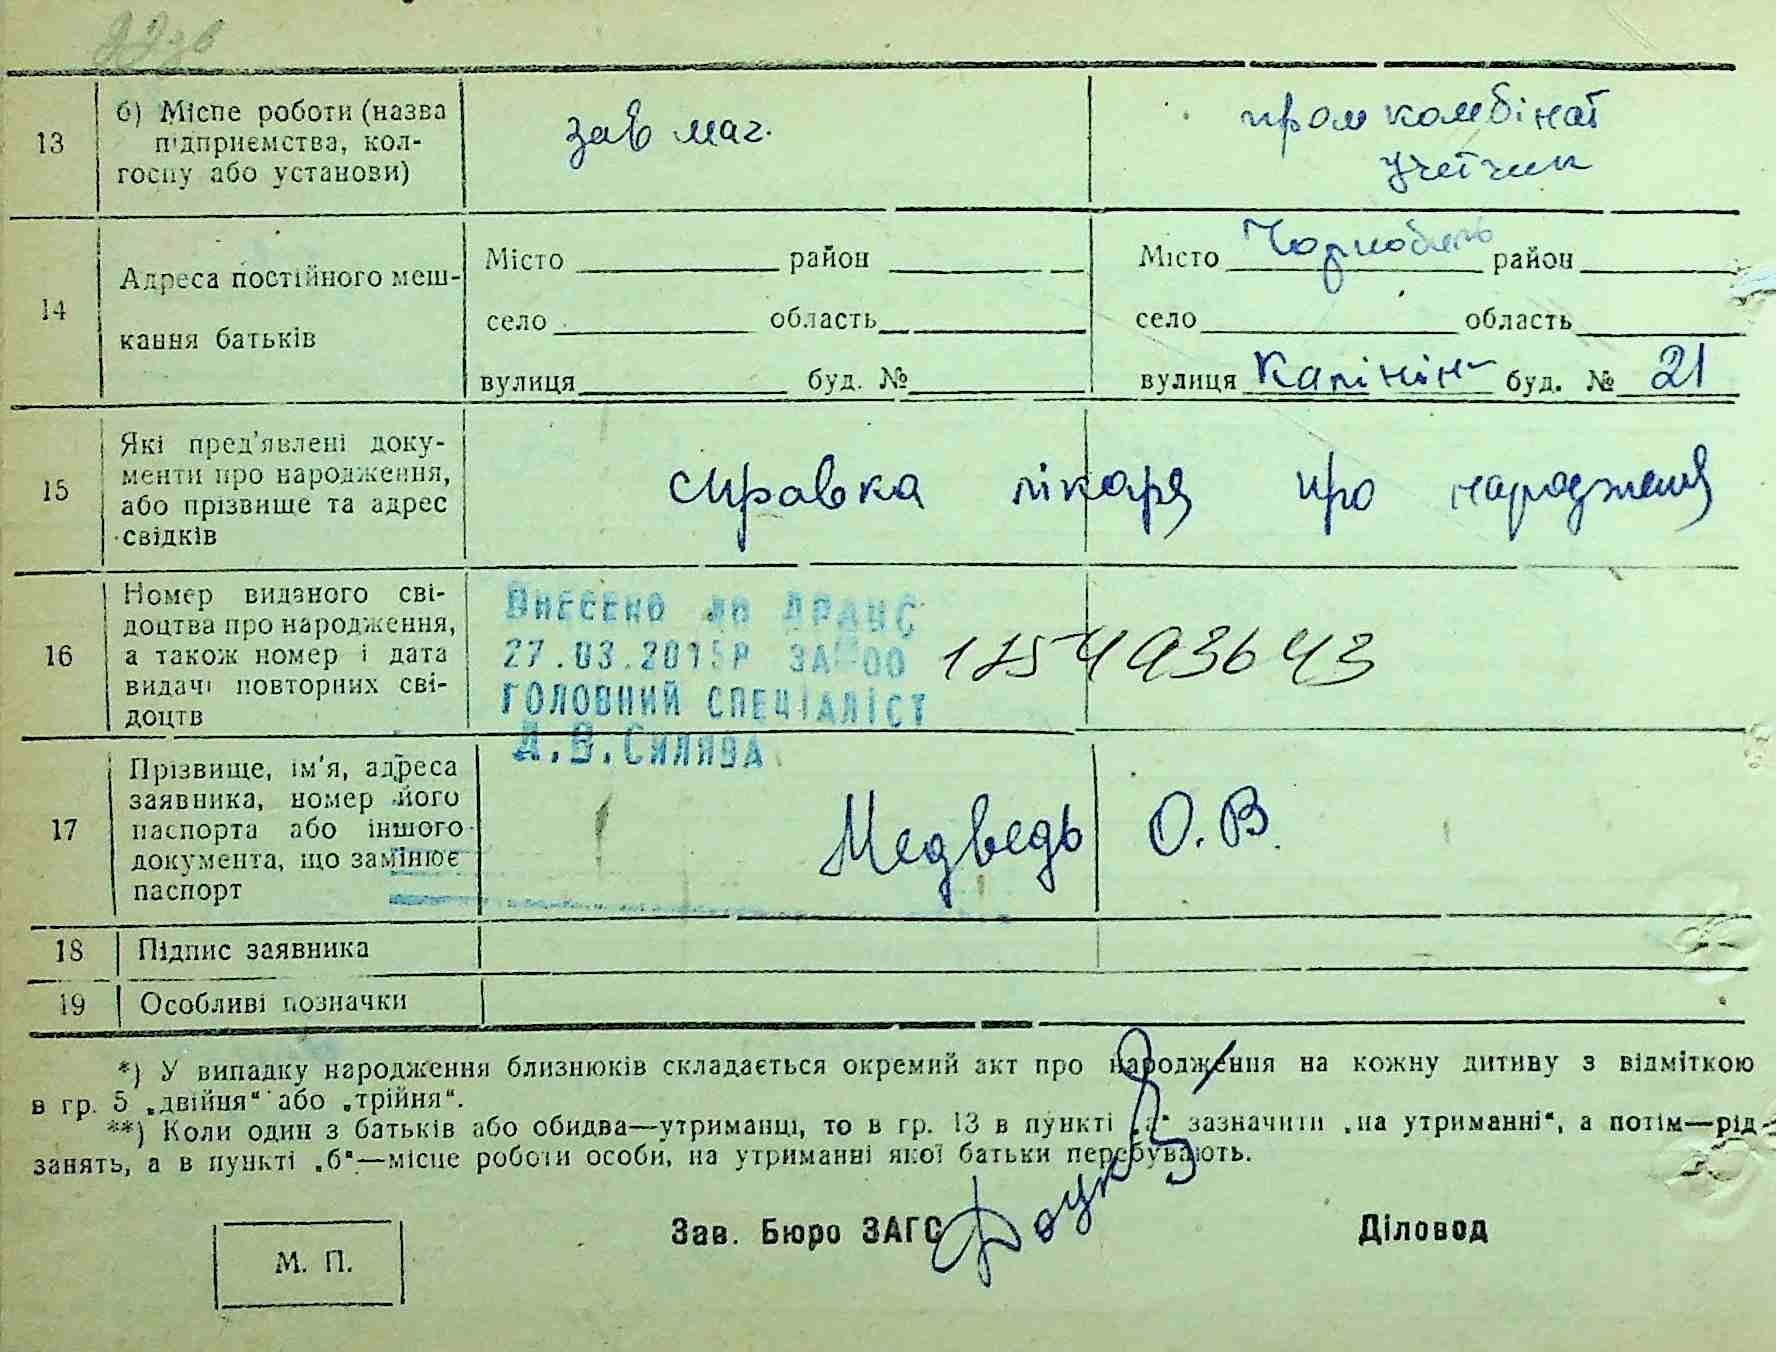 13
б) Місце роботи (назва
підприємства, кол-
госпу або установи)
зав маг.
промкомбінат
учетчик
14
Адреса постійного меш-
кання батьків
Місто район
село область
вулиця буд. №
Місто Чорнобиль район
село область
вулиця Калінін буд. № 21
15
Які пред'явлені доку-
менти про народження,
або прізвище та адрес
свідків
справка лікаря про народження
16
Номер виданого сві-
доцтва про народження,
а також номер і дата
видачі повторних сві-
доцтв
ВНЕСЕНО ДО ДРАЦС
27.03.2015Р ЗА 00
ГОЛОВНИЙ СПЕЦІАЛІСТ
Д.В.СИЛЯВА
17
Прізвище, ім'я, адреса
заявника, номер його
паспорта або іншого
документа, що замінює
паспорт
Медведь О.В.
18 Підпис заявника
19 Особливі позначки
*) У випадку народження близнюків складається окремий акт про народження на кожну дитину з відміткою
в гр. 5 „двійня“ або „трійня“.
**) Коли один з батьків або обидва—утриманці, то в гр. 13 в пункті „а“ зазначити „на утриманні“, а потім—рід
занять, а в пункті „б“—місце роботи особи, на утриманні якої батьки перебувають.
Зав. Бюро ЗАГС
Діловод
М. П.